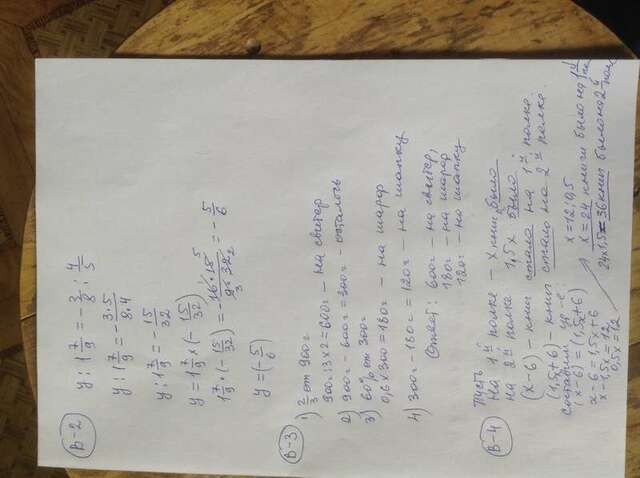 В-2
y : 1 7/9 = - 3/8 : 4/5
y : 1 7/9 = - 3·5/8·4
y : 1 7/9 = - 15/32
y = 1 7/9 × (- 15/32)
1 7/9 · (- 15/32) = - 16·15 5/9·32 3 2 = - 5/6
y = (- 5/6)
В-3
1) 2/3 от 900г
900г : 3 × 2 = 600г – на свитер
2) 900г – 600г = 300г – осталось
3) 60% от 300г
0,6 × 300 = 180г – на шарф
4) 300г – 180г = 120г – на шапку
Ответ: 600г – на свитер,
180г – на шарф
120г – на шапку
В-4
Пусть
на 1й полке – х книг было
на 2й полке 1,5х было
(х-6) – книг стало на 1й полке.
(1,5х+6) – книг стало на 2й полке.
составим ур-е:
(х-6) = (1,5х+6)
х-6 = 1,5х+6
х-1,5х = 12
0,5х = 12
х = 12:0,5
х = 24 книги было на 1й
24х1,5=36книг было на 2й